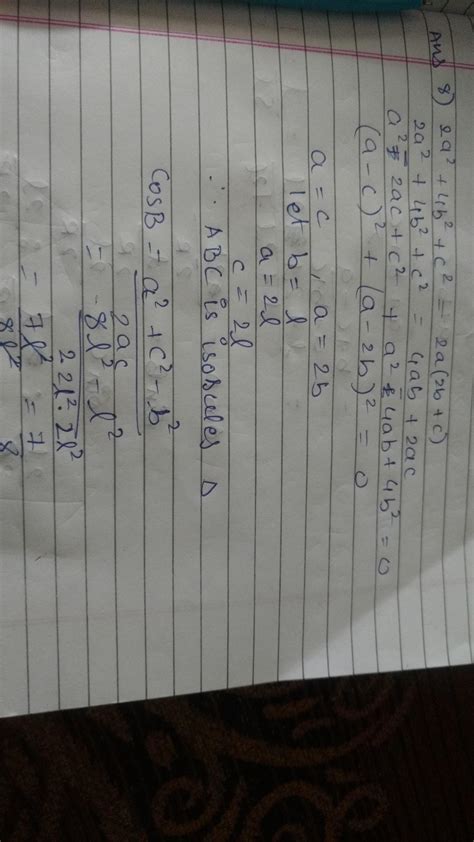 Ans 8) 2a² + 4b² + c² = 2a(2b + c)
2a² + 4b² + c² = 4ab + 2ac
a² - 2ac + c² + a² - 4ab + 4b² = 0
(a - c)² + (a - 2b)² = 0
a = c , a = 2b
let b = l
a = 2l
c = 2l
∴ ABC is isosceles Δ
CosB = a² + c² - b²
2ac
= 8l² - l²
2 2l² . 2l²
= 7l² = 7
8l² 8